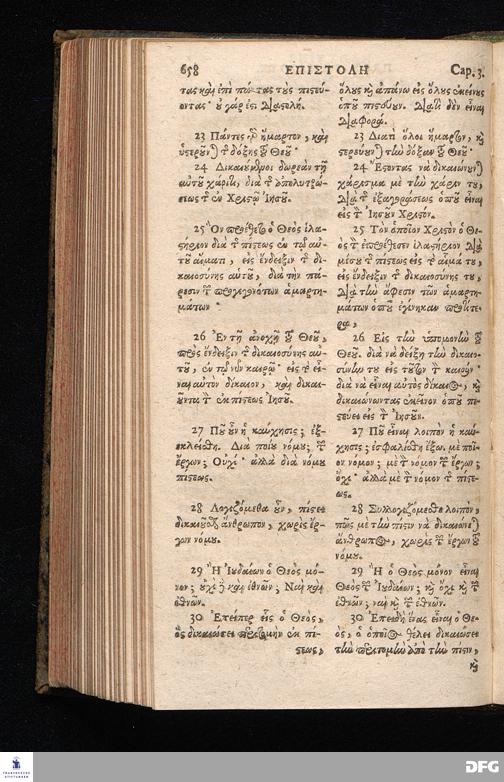 658 ΕΠΙΣΤΟΛΗ Cap. 3.
τας καὶ ἐπὶ πάντας τοὺς πιστεύ-
οντας· οὐ γάρ ἐστι διαστολή.
23 Πάντες γὰρ ἥμαρτον, καὶ
ὑστεροῦνται τῆς δόξης τοῦ Θεοῦ·
24 Δικαιούμενοι δωρεὰν τῇ
αὐτοῦ χάριτι, διὰ τῆς ἀπολυτρώ-
σεως τῆς ἐν Χριστῷ Ἰησοῦ.
25 Ὃν προέθετο ὁ Θεὸς ἱλα-
στήριον διὰ τῆς πίστεως ἐν τῷ αὐ-
τοῦ αἵματι, εἰς ἔνδειξιν τῆς δι-
καιοσύνης αὐτοῦ, διὰ τὴν πά-
ρεσιν τῶν προγεγονότων ἁμαρτη-
μάτων·
26 Ἐν τῇ ἀνοχῇ τοῦ Θεοῦ,
πρὸς ἔνδειξιν τῆς δικαιοσύνης αὐ-
τοῦ, ἐν τῷ νῦν καιρῷ· εἰς τὸ εἶ-
ναι αὐτὸν δίκαιον, καὶ δικαι-
οῦντα τὸν ἐκ πίστεως Ἰησοῦ.
27 Ποῦ οὖν ἡ καύχησις; ἐξ-
εκλείσθη. Διὰ ποίου νόμου; τῶν
ἔργων; Οὐχί· ἀλλὰ διὰ νόμου
πίστεως.
28 Λογιζόμεθα οὖν, πίστει
δικαιοῦσθαι ἄνθρωπον, χωρὶς ἔρ-
γων νόμου.
29 Ἢ Ἰουδαίων ὁ Θεὸς μό-
νον; οὐχὶ δὲ καὶ ἐθνῶν; Ναὶ καὶ
ἐθνῶν.
30 Ἐπείπερ εἷς ὁ Θεὸς,
ὃς δικαιώσει περιτομὴν ἐκ πί-
στεως,
ὅλους καὶ ἀπάνω εἰς ὅλους ἐκείνους
ὁποῦ πιστεύουν. διατὶ δὲν εἶναι
διαφορά.
23 Διατὶ ὅλοι ἥμαρτον, καὶ
ὑστεροῦνται τὴν δόξαν τοῦ Θεοῦ·
24 Ἔσοντας νὰ δικαιώνωνται
χάρισμα μὲ τὴν χάριν του,
διὰ τῆς ἐξαγοράσεως ὁποῦ εἶναι
εἰς τὸν Ἰησοῦν Χριστόν.
25 Τὸν ὁποῖον Χριστὸν ὁ Θε-
ὸς τὸν ἐπροέθεσεν ἱλαστήριον διὰ
μέσου τῆς πίστεως εἰς τὸ αἷμά του,
εἰς ἔνδειξιν τῆς δικαιοσύνης του,
διὰ τὴν ἄφεσιν τῶν ἁμαρτη-
μάτων ὁποῦ ἐγίνηκαν προτίτε-
ρα,
26 Εἰς τὴν ὑπομονὴν τοῦ
Θεοῦ. διὰ νὰ δείξῃ τὴν δικαιο-
σύνην του εἰς τοῦτον τὸν καιρόν·
διὰ νὰ εἶναι αὐτὸς δίκαιος, καὶ
δικαιώνωντας ἐκεῖνον ὁποῦ πι-
στεύει εἰς τὸν Ἰησοῦν.
27 Ποῦ εἶναι λοιπὸν ἡ καύ-
χησις; ἐσφαλίσθη ἔξω. μὲ ποῖ-
ον νόμον; μὲ τὸν νόμον τῶν ἔργων;
ὄχι· ἀλλὰ μὲ τὸν νόμον τῆς πίστε-
ως.
28 Συλλογιζόμεσθε λοιπὸν,
πῶς μὲ τὴν πίστιν νὰ δικαιώνεται
ἄνθρωπος, χωρὶς τῶν ἔργων τοῦ
νόμου.
29 Ἢ ὁ Θεὸς μόνον εἶναι
Θεὸς τῶν Ἰουδαίων; καὶ ὄχι καὶ τῶν
ἐθνῶν; ναὶ καὶ τῶν ἐθνῶν.
30 Ἐπειδὴ ἕνας εἶναι ὁ Θε-
ὸς, ὁ ὁποῖος θέλει δικαιώσει
τὴν περιτομὴν ἀπὸ τὴν πίστιν,
καὶ
FRANCKESCHE
STIFTUNGEN
DFG